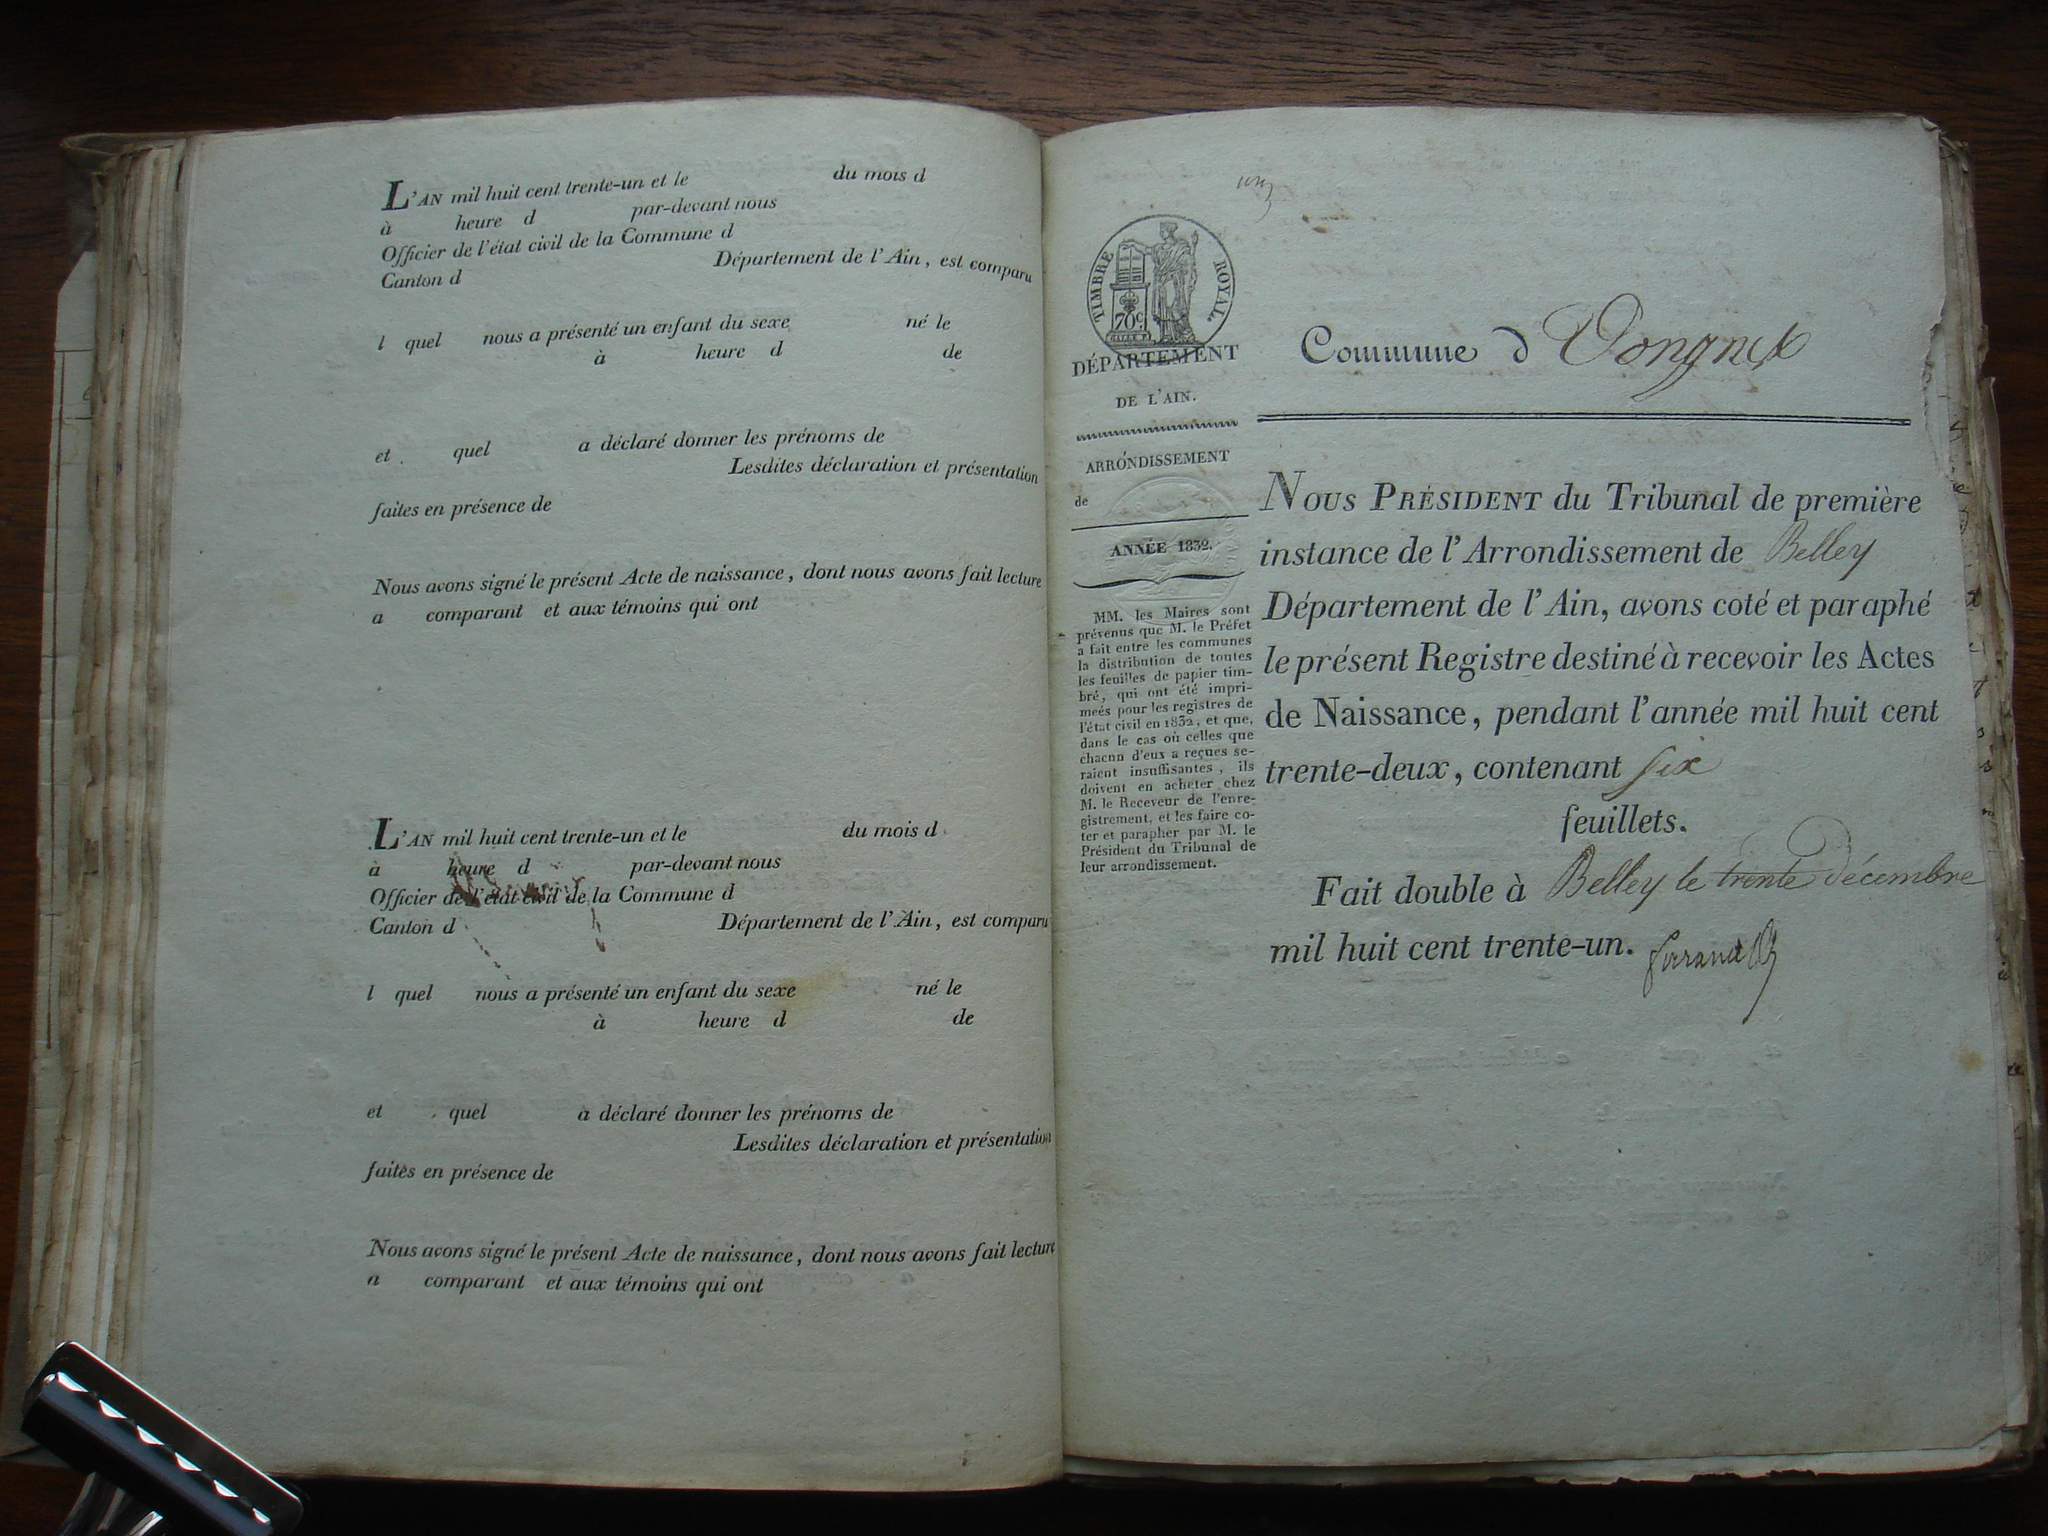 L'AN mil huit cent trente-un et le du mois d
à heure d par-devant nous
Officier de l'état civil de la Commune d
Canton d Département de l'Ain, est comparu
l quel nous a présenté un enfant du sexe né le
à heure d de
et quel a déclaré donner les prénoms de
Lesdites déclaration et présentation
faites en présence de
Nous avons signé le présent Acte de naissance, dont nous avons fait lecture
a comparant et aux témoins qui ont
L'AN mil huit cent trente-un et le du mois d
à heure d par-devant nous
Officier de l'état civil de la Commune d
Canton d Département de l'Ain, est comparu
l quel nous a présenté un enfant du sexe né le
à heure d de
et quel a déclaré donner les prénoms de
Lesdites déclaration et présentation
faites en présence de
Nous avons signé le présent Acte de naissance, dont nous avons fait lecture
a comparant et aux témoins qui ont
TIMBRE ROYAL
70c
DÉPARTEMENT
DE L'AIN.
ARRONDISSEMENT
de
ANNÉE 1832.
MM. les Maires sont
prévenus que M. le Préfet
a fait entre les communes
la distribution de toutes
les feuilles de papier tim-
bré, qui ont été impri-
meés pour les registres de
l'état civil en 1832, et que,
dans le cas où celles que
chacun d'eux a reçues se-
raient insuffisantes, ils
doivent en acheter chez
M. le Receveur de l'enre-
gistrement, et les faire co-
ter et parapher par M. le
Président du Tribunal de
leur arrondissement.
Commune d Vongnes
NOUS PRÉSIDENT du Tribunal de première
instance de l'Arrondissement de Belley
Département de l'Ain, avons coté et paraphé
le présent Registre destiné à recevoir les Actes
de Naissance, pendant l'année mil huit cent
trente-deux, contenant six
feuillets.
Fait double à Belley le trente décembre
mil huit cent trente-un.